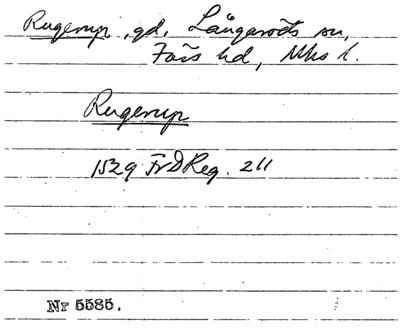 Rugerup, gd, Långaröds sn,
Färs hd, Mhs l.
Rugerup
1529 FrDReg. 211
Nr 5585.